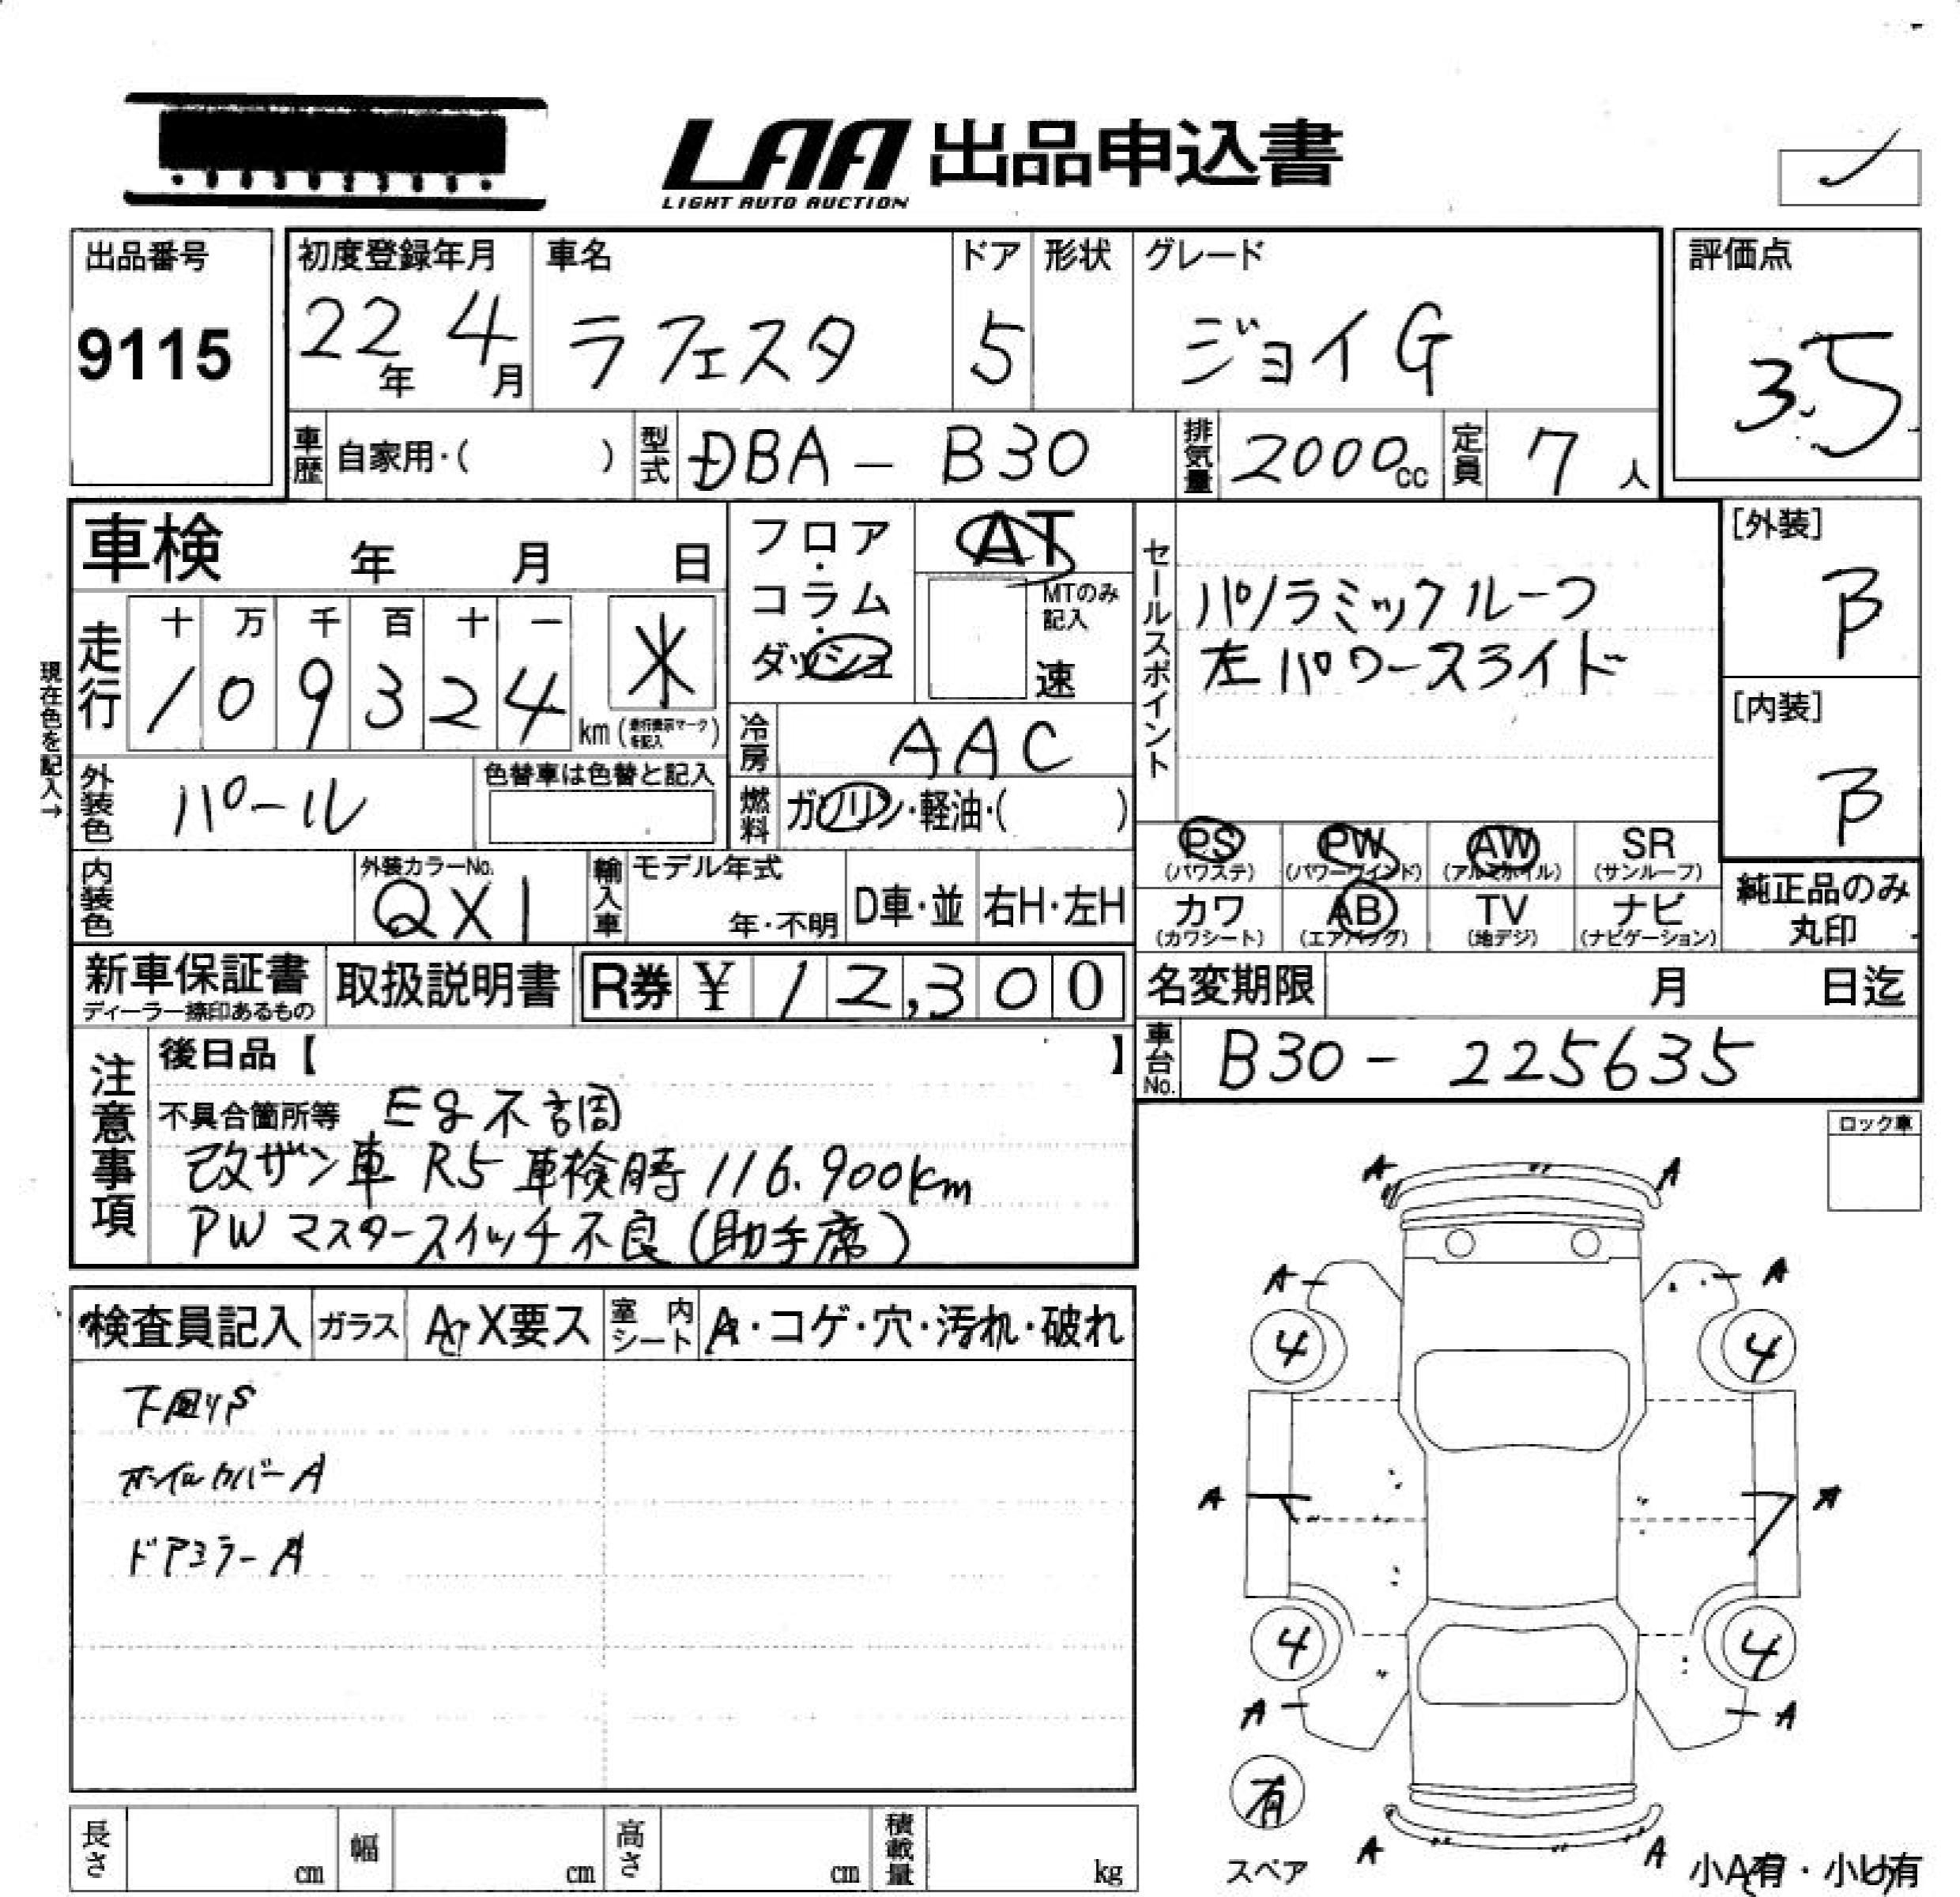 LAA 出品申込書
LIGHT AUTO AUCTION
出品番号
9115
初度登録年月
22年 4月
車名
ラフェスタ
ドア
5
形状
グレード
ジョイG
評価点
3.5
車歴 自家用・( )
型式 DBA - B30
排気量 2000cc
定員 7人
車検 年 月 日
現在色を記入→
走行
十 万 千 百 十 一
1 0 9 3 2 4 km
(走行表示マークを記入)
フロア・コラム・ダッシュ
AT
MTのみ記入
速
冷房 AAC
燃料 ガソリン・軽油・( )
セールスポイント
パノラミックルーフ
左パワースライド
[外装]
B
[内装]
B
外装色 パール
色替車は色替と記入
内装色
外装カラーNo.
QX1
輸入車
モデル年式
年・不明
D車・並
右H・左H
PS (パワステ)
PW (パワーウィンド)
AW (アルミホイル)
SR (サンルーフ)
カワ (カワシート)
AB (エアバッグ)
TV (地デジ)
ナビ (ナビゲーション)
純正品のみ
丸印
新車保証書
ディーラー捺印あるもの
取扱説明書
R券 ¥ 12,300
名変期限 月 日迄
車台No. B30 - 225635
注意事項
後日品【 】
不具合箇所等 Eg不調
改ザン車 R5 車検時 116.900km
PWマスタースイッチ不良(助手席)
ロック車
検査員記入
ガラス
A・X要ス
室内シート
A・コゲ・穴・汚れ・破れ
下廻りS
ホイルカバーA
ドアミラーA
A A
A A
4 4
A A
4 4
A A
有
スペア
A A
小A有・小U有
長さ cm
幅 cm
高さ cm
積載量 kg